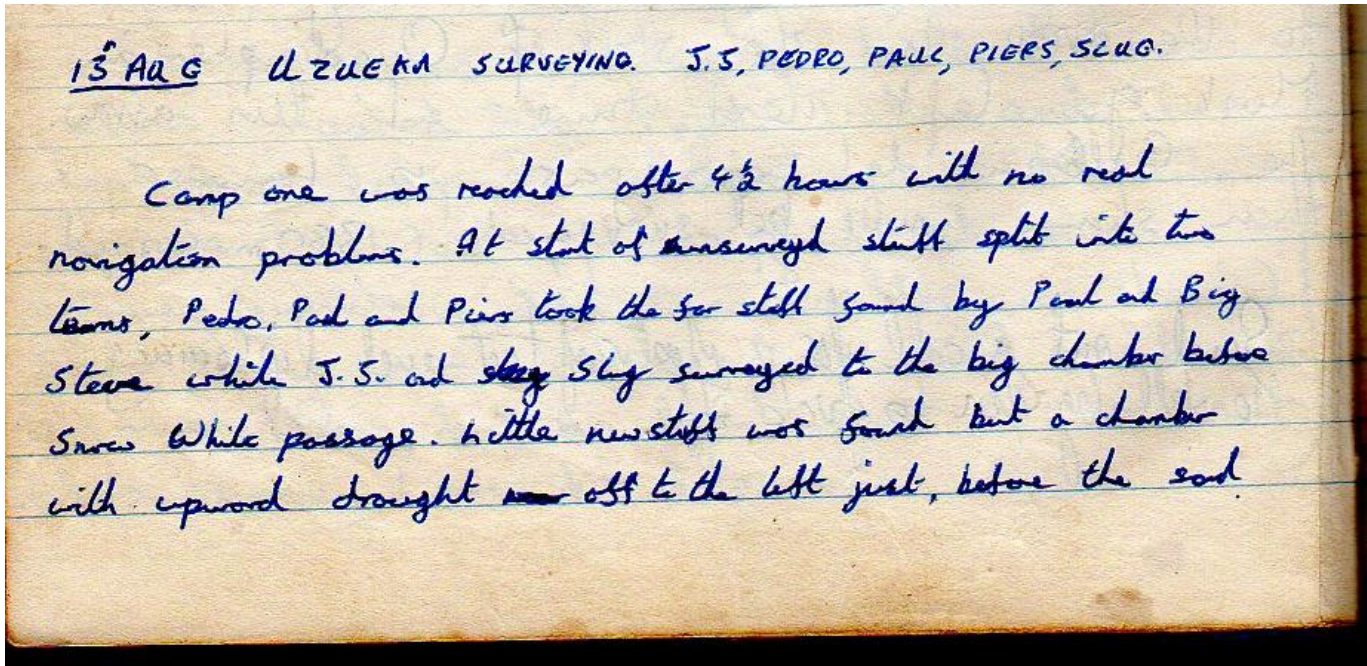 13th AUG UZUEKA SURVEYING. J.S, PEDRO, PAUL, PIERS, SLUG.
Camp one was reached after 4½ hours with no real
navigation problems. At start of unsurveyd stuff split into two
teams, Pedro, Paul and Piers took the far stuff found by Paul and Big
Steve while J.S. and Slug surveyed to the big chamber before
Snow White passage. Little new stuff was found but a chamber
with upward draught off to the left just, before the sand